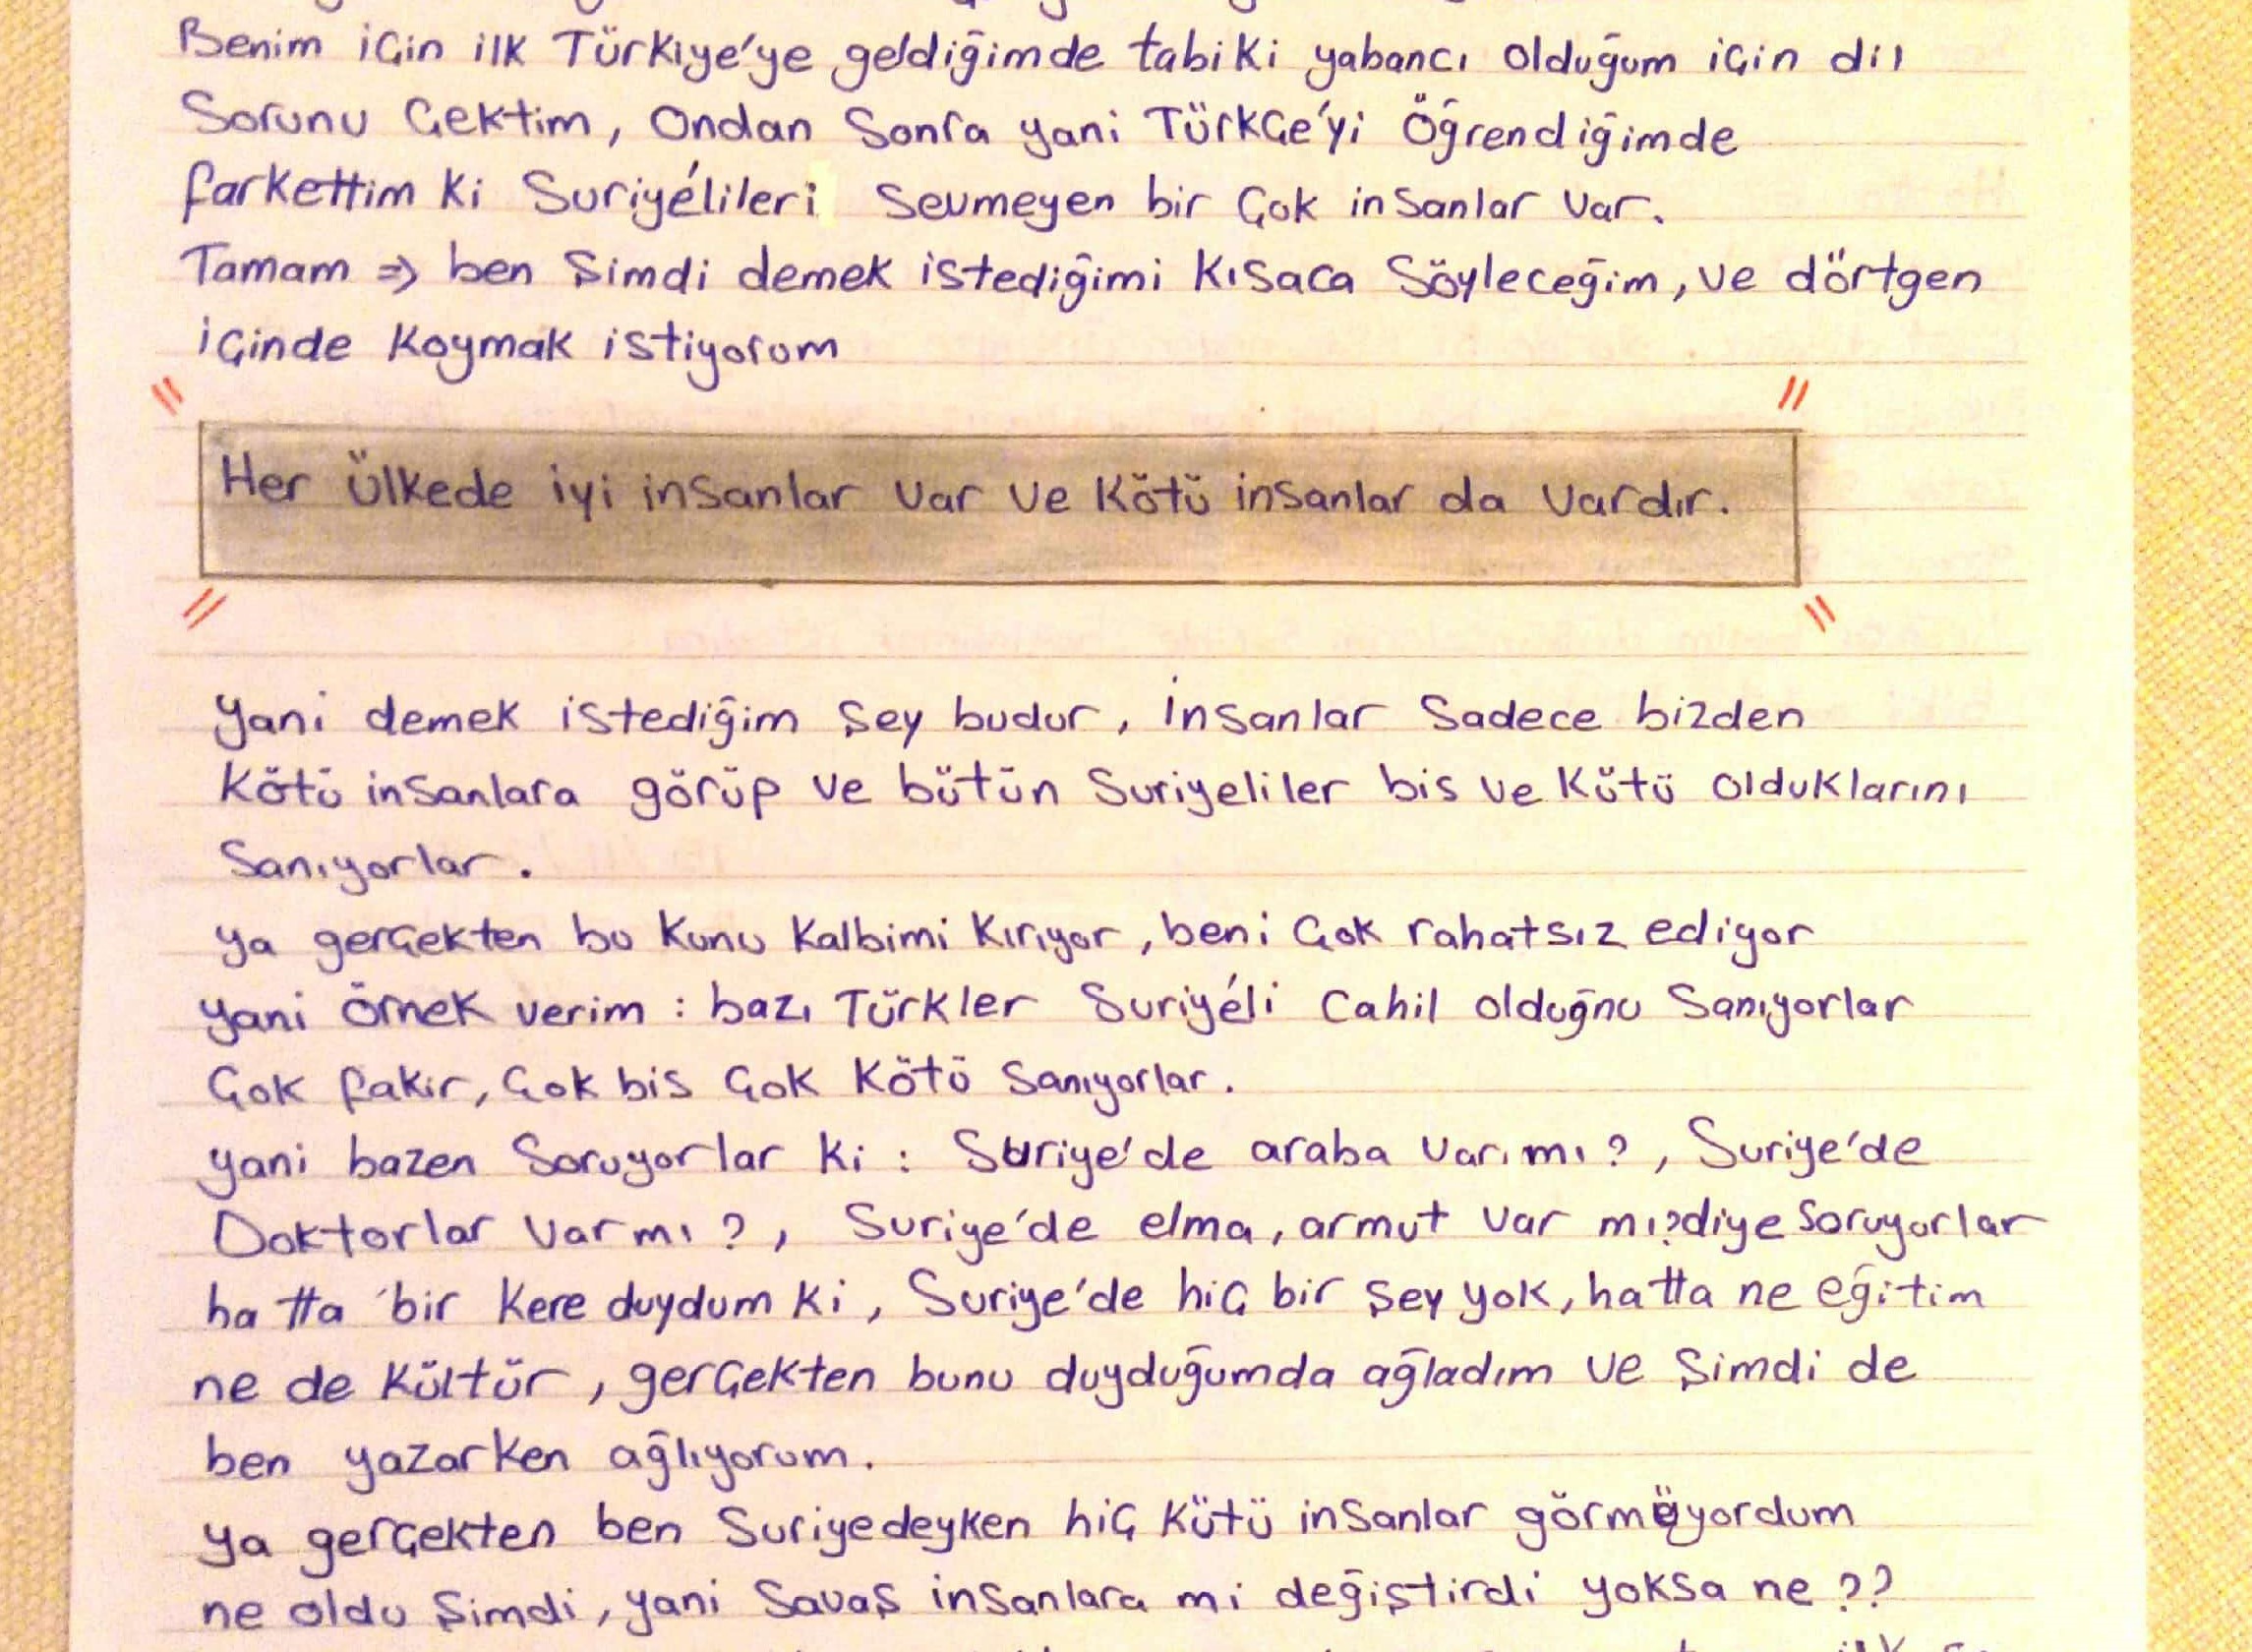 Benim için ilk Türkiye'ye geldiğimde tabiki yabancı olduğum için dil
Sorunu Çektim, Ondan Sonra yani Türkçe'yi Öğrendiğimde
farkettim ki Suriyélileri Sevmeyen bir Çok insanlar var.
Tamam ⇒ ben Şimdi demek istediğimi kısaca Söyleceğim, ve dörtgen
içinde koymak istiyorum
Her ülkede iyi insanlar var ve kötü insanlar da vardır.
Yani demek istediğim Şey budur, İnsanlar Sadece bizden
kötü insanlara görüp ve bütün Suriyeliler bis ve kütü olduklarını
Sanıyorlar.
Ya gerçekten bu konu kalbimi kırıyor, beni Çok rahatsız ediyor
yani örnek verim : bazı Türkler Suriyéli Cahil olduğnu Sanıyorlar
Çok fakir, Çok bis Çok kötü Sanıyorlar.
yani bazen Soruyorlar ki : Suriye'de araba varımı?, Suriye'de
Doktorlar var mı?, Suriye'de elma, armut var mı?diye Soruyorlar
hatta bir kere duydum ki, Suriye'de hiç bir Şey yok, hatta ne eğitim
ne de kültür, gerçekten bunu duyduğumda ağladım ve Şimdi de
ben yazarken ağlıyorum.
Ya gerçekten ben Suriyedeyken hiç kütü insanlar görmüyordum
ne oldu Şimdi, yani Savaş insanlara mi değiştirdi yoksa ne ??